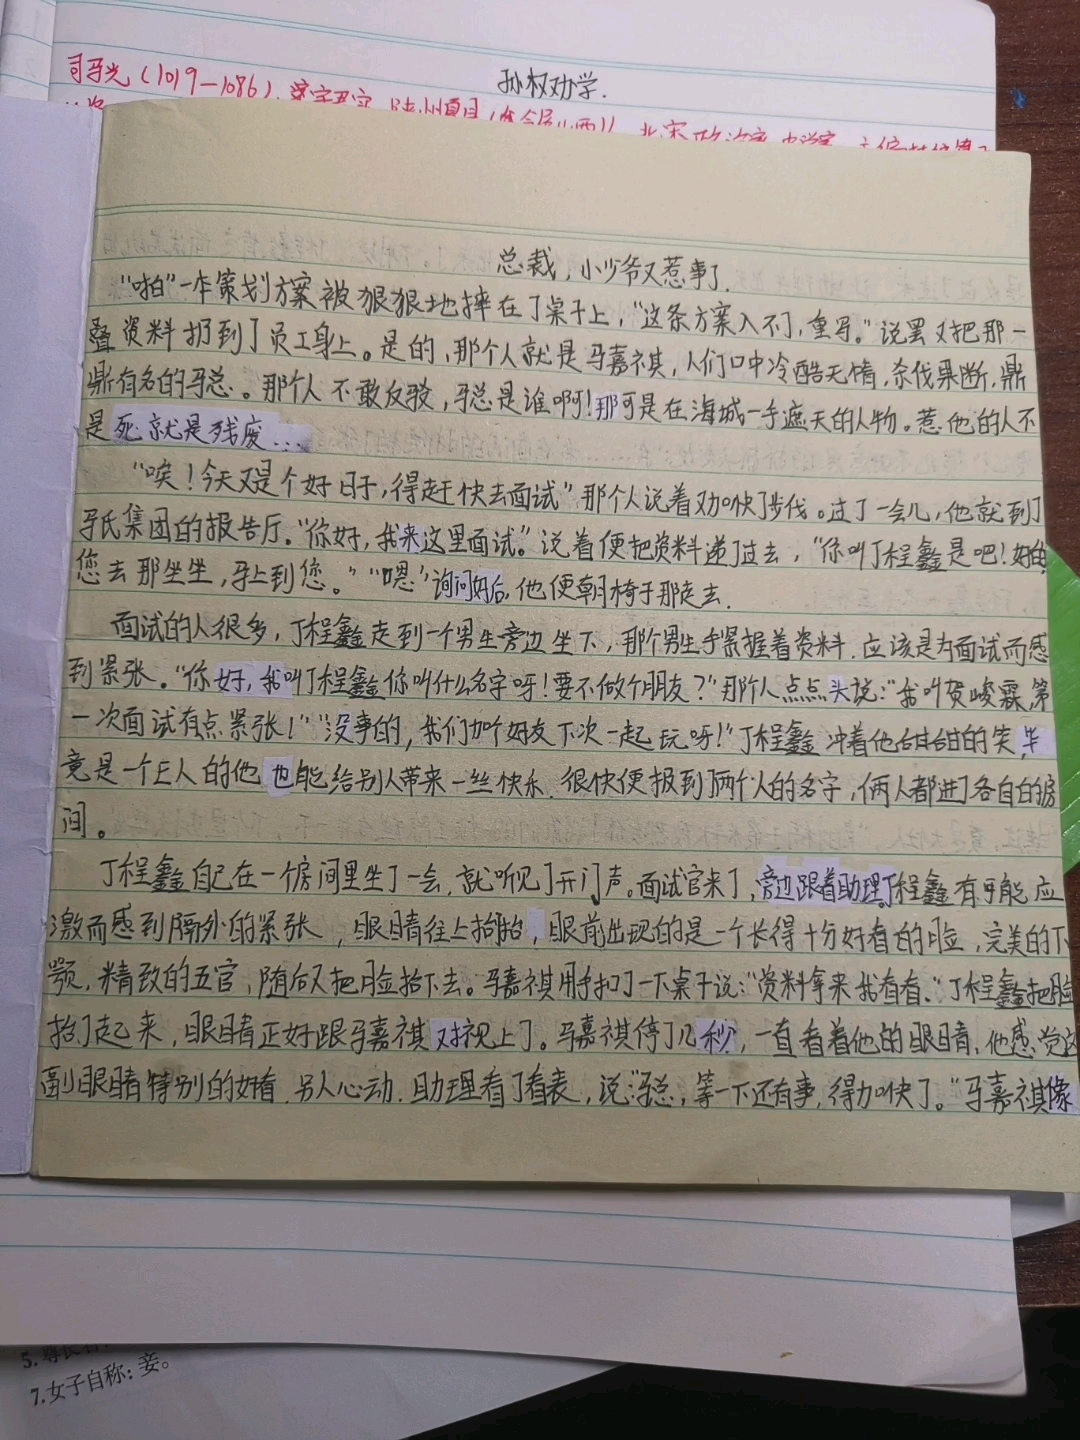 孙权劝学.
司马光(1019—1086),
总裁,小少爷又惹事了.
“啪”一本策划方案被狠狠地摔在了桌子上,“这条方案入不了,重写。”说罢又把那一
叠资料扔到了员工身上。是的,那个人就是马嘉祺,人们口中冷酷无情,杀伐果断,鼎
鼎有名的马总。那个人不敢反驳,马总是谁啊!那可是在海城一手遮天的人物。惹他的人不
是死就是残废...
“唉!今天又是个好日子,得赶快去面试”那个人说着加快了步伐。过了一会儿,他就到了
马氏集团的报告厅。“你好,我来这里面试。”说着便把资料递了过去,“你叫丁程鑫是吧!好的
您去那坐坐,马上到您。”“嗯”询问好后,他便朝椅子那走去.
面试的人很多,丁程鑫走到一个男生旁边坐下,那个男生手紧握着资料.应该是为面试而感
到紧张。“你好,我叫丁程鑫你叫什么名字呀!要不做个朋友?”那个人点点头说:“我叫贺峻霖,第
一次面试有点紧张!”“没事的,我们加个好友下次一起玩呀!”丁程鑫冲着他甜甜的笑,毕
竟是一个正人的他也能给别人带来一丝快乐.很快便报到了两个人的名字,俩人都进了各自的房
间。
丁程鑫自己在一个房间里坐了一会,就听见了开门声。面试官来了,旁边跟着助理,丁程鑫有可能应
激而感到隔外的紧张,眼睛往上抬抬,眼前出现的是一个长得十分好看的脸,完美的下
颚,精致的五官,随后又把脸抬下去。马嘉祺用手扣了一下桌子说:“资料拿来我看看.”丁程鑫把脸
抬了起来,眼睛正好跟马嘉祺对视上了。马嘉祺停了几秒,一直看着他的眼睛,他感觉这
副眼睛特别的好看.另人心动.助理看了看表,说:“马总,等一下还有事,得加快了。”马嘉祺像
7.女子自称:妾。